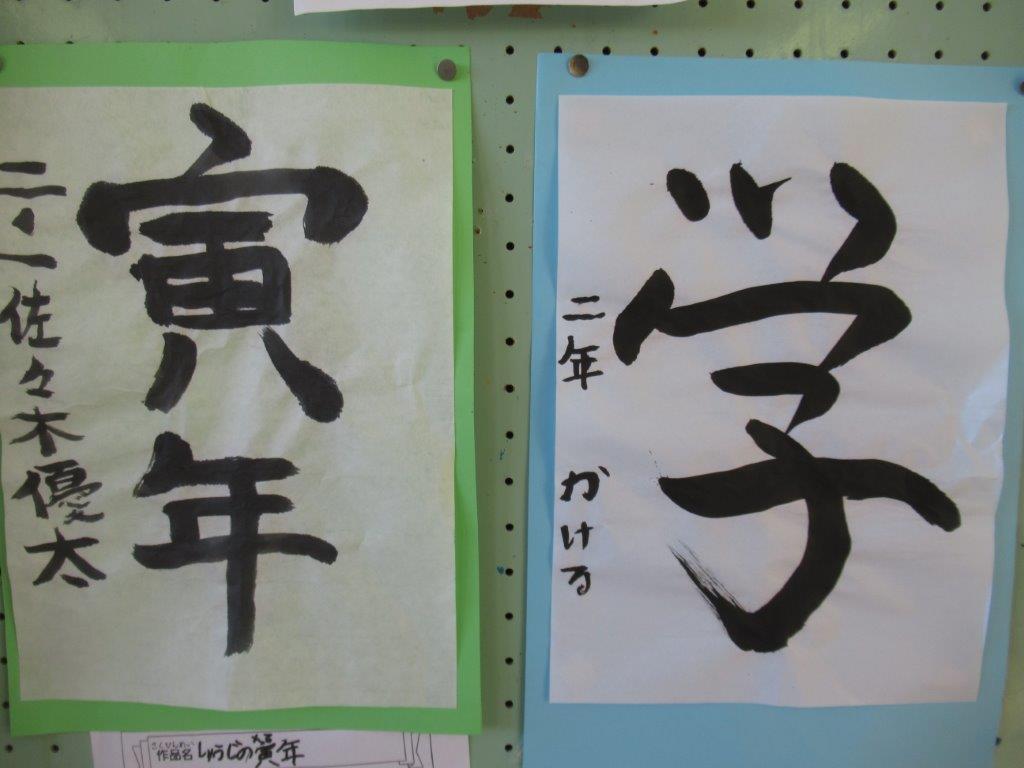 寅年
二・一 佐々木優太
学
二年 かける
さくひんめい
作品名 しゅうじの寅年